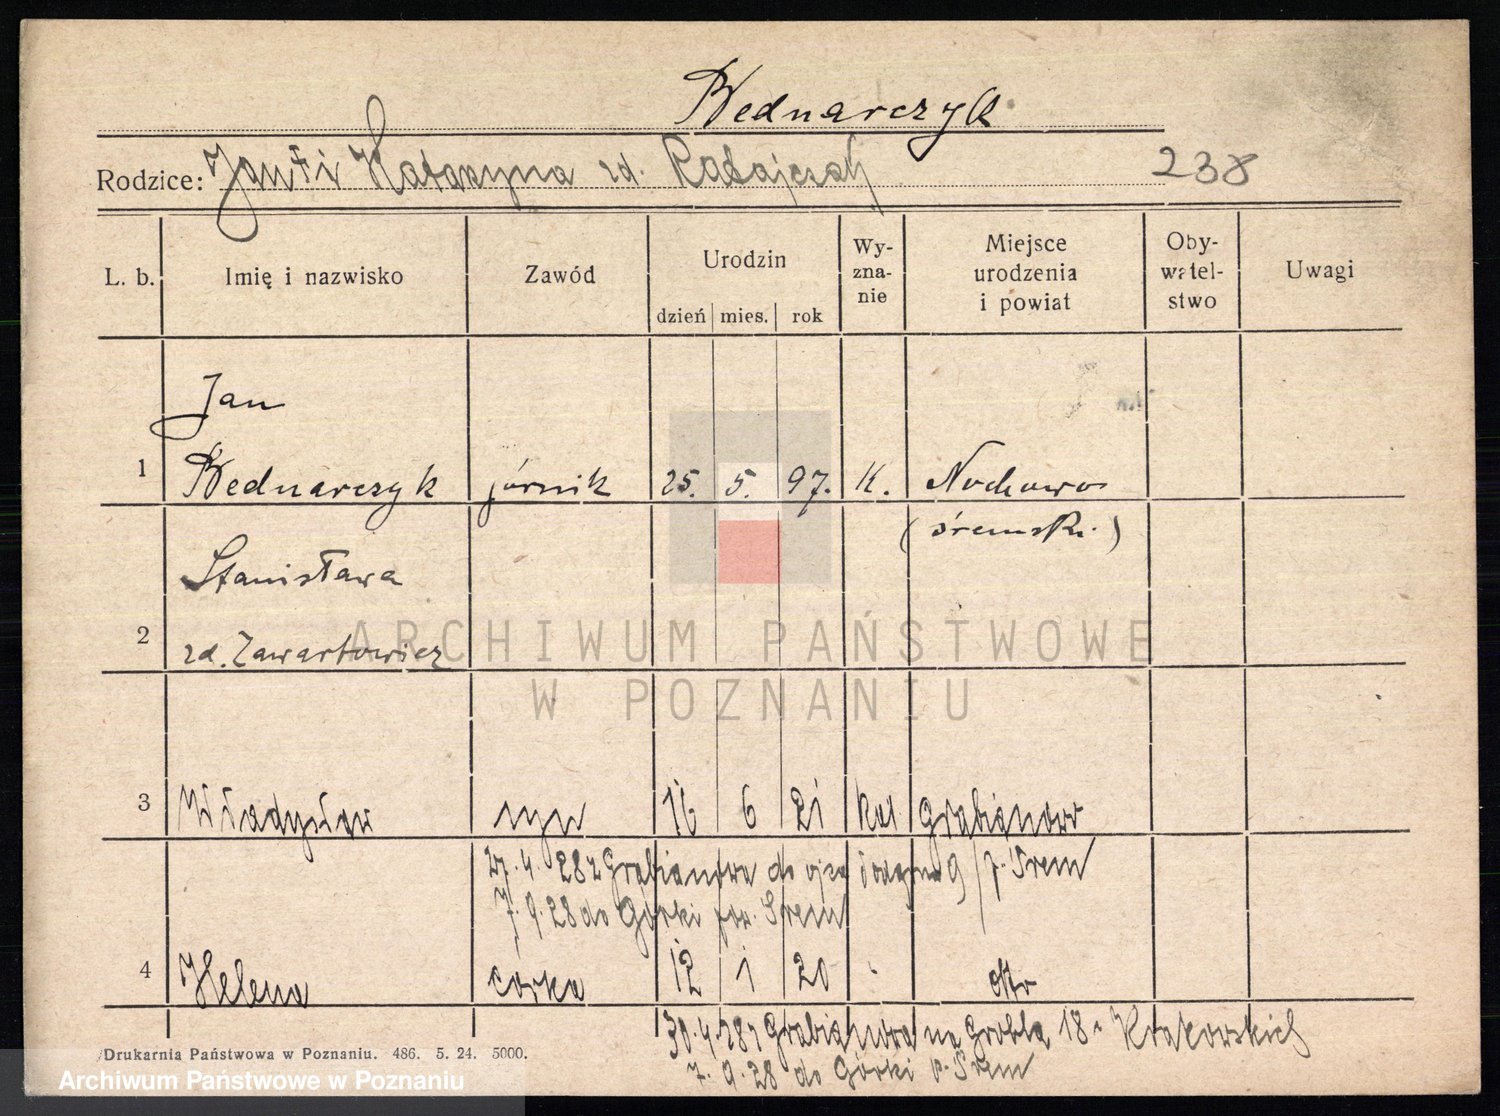 Bednarczyk
Rodzice: Jan i Katarzyna zd. Ratajczak 238
L. b. Imię i nazwisko Zawód Urodzin dzień mies. rok Wy-zna-nie Miejsce urodzenia i powiat Oby-watel-stwo Uwagi
Jan
1 Bednarczyk górnik 25. 5. 97. K. Nochowo
(śremski)
Stanisława
2 zd. Zawartowicz
3 Władysław syn 16 6 21 kat Grabianowo
27.4.28 z Grabianowa do ojca p. Śrem
7.9.28 do Górki pow. Śrem
4 Helena córka 12 1 20
30.4.28 z Grabianowa na Groblą 18 u Krakowskich
7.9.28 do Górki p. Śrem
Drukarnia Państwowa w Poznaniu. 486. 5. 24. 5000.
ARCHIWUM PAŃSTWOWE
W POZNANIU
Archiwum Państwowe w Poznaniu